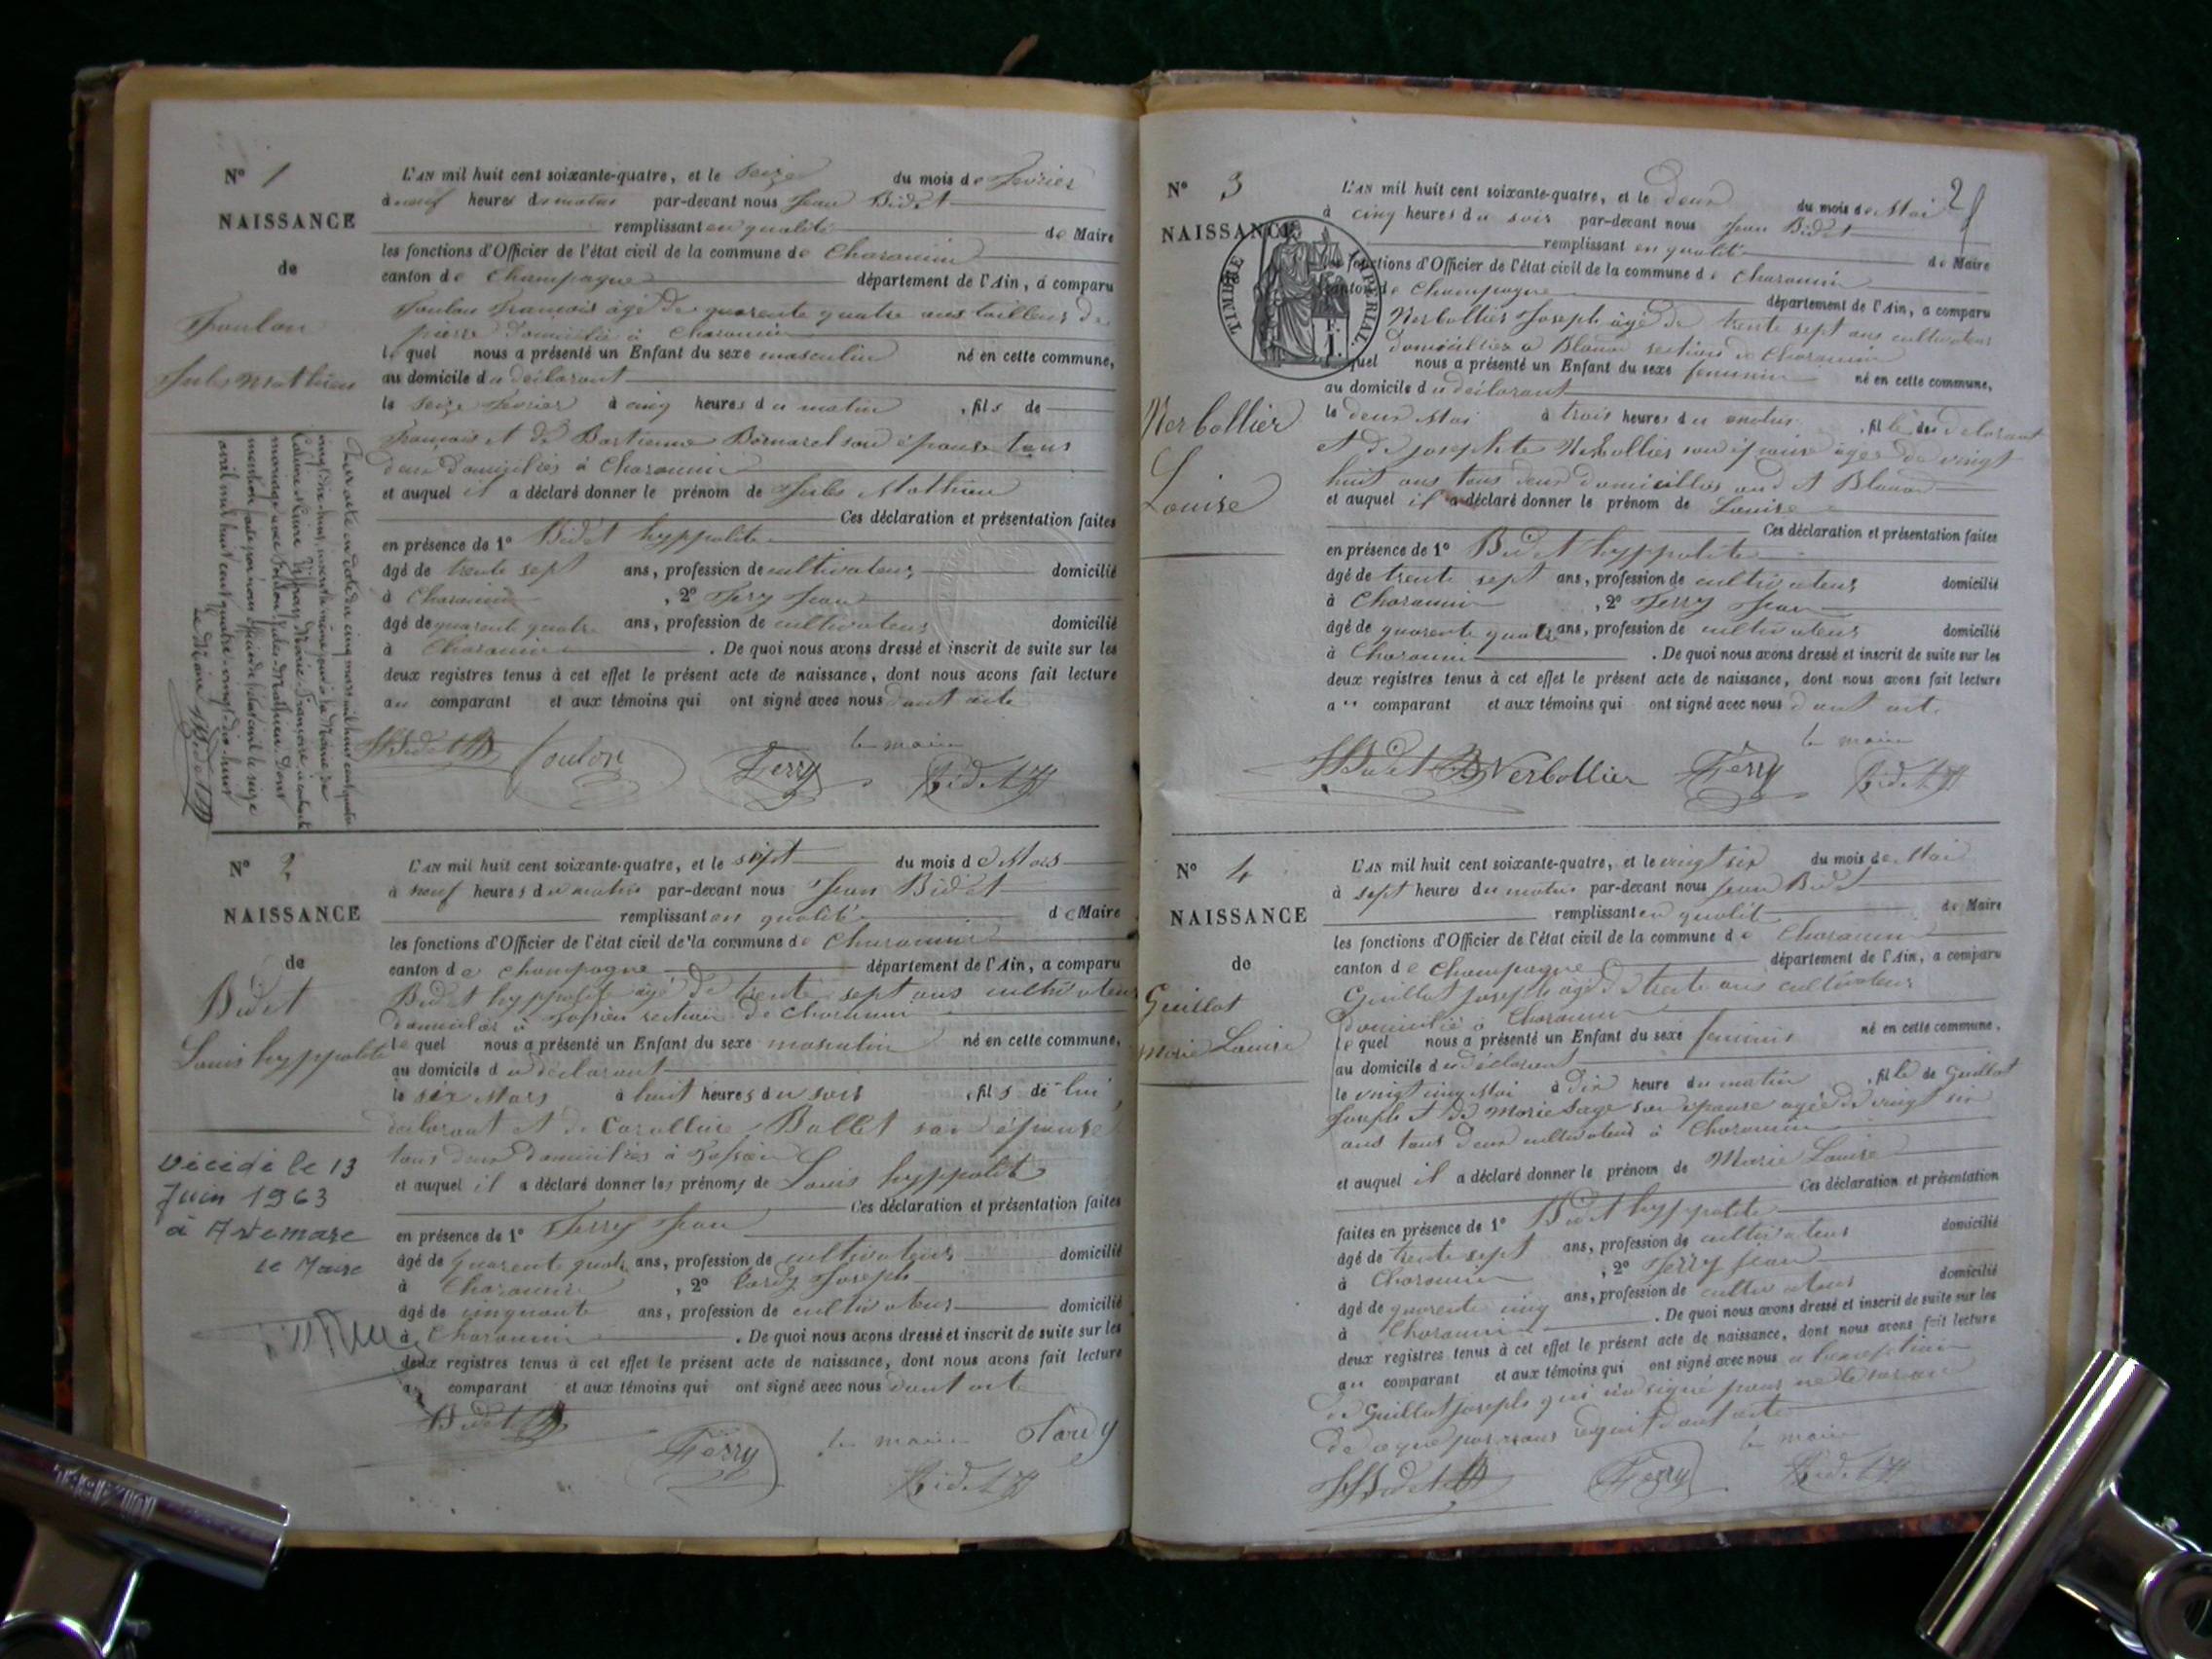 N° 1
NAISSANCE
de
Foulon
Jules Mathieu
L'AN mil huit cent soixante-quatre, et le seize du mois de Fevrier
à neuf heures du matin par-devant nous Jean Bidet
remplissant en qualité de Maire
les fonctions d'Officier de l'état civil de la commune de Charancin
canton de Champagne département de l'Ain, a comparu
Foulon François âgé de quarente quatre ans tailleur de
pierre domicilié à Charancin
le quel nous a présenté un Enfant du sexe masculin né en cette commune,
au domicile du déclarant
le seize Fevrier à cinq heures du matin , fils de
François et de Bastienne Bornarel son épouse tous
deux domiciliés à Charancin
et auquel il a déclaré donner le prénom de Jules Mathieu
Ces déclaration et présentation faites
en présence de 1° Bidet hyppolite
âgé de trente sept ans, profession de cultivateur domicilié
à Charancin , 2° Ferry Jean
âgé de quarente quatre ans, profession de cultivateur domicilié
à Charancin . De quoi nous avons dressé et inscrit de suite sur les
deux registres tenus à cet effet le présent acte de naissance, dont nous avons fait lecture
au comparant et aux témoins qui ont signé avec nous dont acte
le maire
Bidet Foulon Ferry Bidet
Par acte en date du cinq mars mil huit cent quatre
vingt dix-huit, inscrit à la Mairie de
Marie-Françoise, a contracté
mariage avec Foulon Jules-Mathieu. Dont
mention faite par nous officier de l'état civil le seize
avril mil huit cent quatre-vingt-dix-huit
Le Maire Bidet
N° 2
NAISSANCE
de
Bidet
Louis hyppolite
Décédé le 13
Juin 1963
à Artemare
Le Maire
L'AN mil huit cent soixante-quatre, et le sept du mois de Mars
à neuf heures du matin par-devant nous Jean Bidet
remplissant en qualité de Maire
les fonctions d'Officier de l'état civil de la commune de Charancin
canton de Champagne département de l'Ain, a comparu
Bidet hyppolite âgé de trente sept ans cultivateur
domicilié à section de Charancin
le quel nous a présenté un Enfant du sexe masculin né en cette commune,
au domicile du déclarant
le six Mars à huit heures du soir , fils de lui
declarant et de Carolline Ballet son épouse
tous deux domiciliés à
et auquel il a déclaré donner les prénoms de Louis hyppolite
Ces déclaration et présentation faites
en présence de 1° Ferry Jean
âgé de quarente quatre ans, profession de cultivateur domicilié
à Charancin , 2° Joseph
âgé de cinquante ans, profession de cultivateur domicilié
à Charancin . De quoi nous avons dressé et inscrit de suite sur les
deux registres tenus à cet effet le présent acte de naissance, dont nous avons fait lecture
au comparant et aux témoins qui ont signé avec nous dont acte
Bidet Ferry le maire
Bidet
N° 3
NAISSANCE
TIMBRE IMPERIAL
Nerbollier
Louise
2
L'AN mil huit cent soixante-quatre, et le deux du mois de Mai
à cinq heures du soir par-devant nous Jean Bidet
remplissant en qualité de Maire
les fonctions d'Officier de l'état civil de la commune de Charancin
canton de Champagne département de l'Ain, a comparu
Nerbollier Joseph âgé de trente sept ans cultivateur
domicilié à Blanod section de Charancin
le quel nous a présenté un Enfant du sexe feminin né en cette commune,
au domicile du déclarant
le deux Mai à trois heures du matin , fille du declarant
et de josephte Nerbollier son épouse âgée de vingt
huit ans tous deux domiciliés audit Blanod
et auquel il a déclaré donner le prénom de Louise
Ces déclaration et présentation faites
en présence de 1° Bidet hyppolite
âgé de trente sept ans, profession de cultivateur domicilié
à Charancin , 2° Ferry Jean
âgé de quarente quatre ans, profession de cultivateur domicilié
à Charancin . De quoi nous avons dressé et inscrit de suite sur les
deux registres tenus à cet effet le présent acte de naissance, dont nous avons fait lecture
au comparant et aux témoins qui ont signé avec nous dont act.
le maire
Bidet Nerbollier Ferry Bidet
N° 4
NAISSANCE
de
Guillot
Marie Louise
L'AN mil huit cent soixante-quatre, et le vingt six du mois de Mai
à sept heures du matin par-devant nous Jean Bidet
remplissant en qualité de Maire
les fonctions d'Officier de l'état civil de la commune de Charancin
canton de Champagne département de l'Ain, a comparu
Guillot joseph agé de trente ans cultivateur
domicilié à Charancin
le quel nous a présenté un Enfant du sexe feminin né en cette commune,
au domicile du déclarant
le vingt cinq Mai à dix heure du matin , fille de Guillot
Joseph et de Marie Sage son épouse agée de vingt six
ans tous deux cultivateurs à Charancin
et auquel il a déclaré donner le prénom de Marie Louise
Ces déclaration et présentation
faites en présence de 1° Bidet hyppolite
âgé de trente sept ans, profession de cultivateur domicilié
à Charancin , 2° Ferry Jean
âgé de quarente cinq ans, profession de cultivateur domicilié
à Charancin . De quoi nous avons dressé et inscrit de suite sur les
deux registres tenus à cet effet le présent acte de naissance, dont nous avons fait lecture
au comparant et aux témoins qui ont signé avec nous a l'exception
de Guillot joseph qui n'a signé pour ne le savoir
de ce que par nous requit dont acte
le maire
Bidet Ferry Bidet